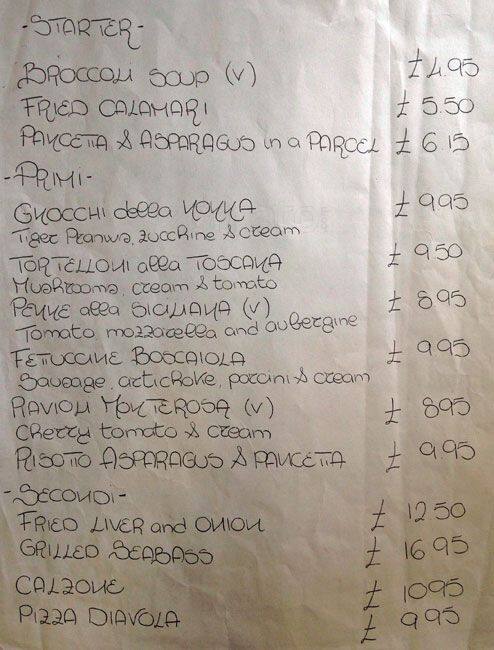 -STARTER-
BROCCOLI SOUP (V) £4.95
FRIED CALAMARI £ 5.50
PANCETTA & ASPARAGUS in a PARCEL £ 6 15
-PRIMI-
GNOCCHI della NONNA £ 9.95
Tiger Prawns, zucchine & cream
TORTELLONI alla TOSCANA £ 9.50
Mushrooms, cream & tomato
PENNE alla SICILIANA (V) £ 8.95
Tomato, mozzarella and aubergine
FETUCCINE BOSCAIOLA £ 9.95
Sausage, artichoke, porcini & cream
RAVIOLI MONTEROSA (V) £ 8.95
Cherry tomato & cream
RISOTTO ASPARAGUS & PANCETTA £ 9.95
-SECONDI-
FRIED LIVER and ONION £ 12 50
GRILLED SEABASS £ 16 95
CALZONE £ 10 95
PIZZA DIAVOLA £ 9 95